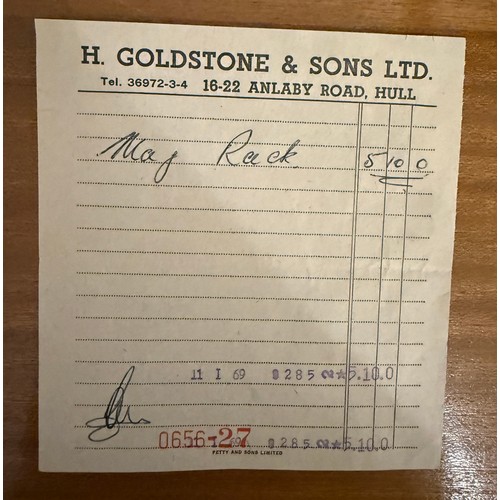 H. GOLDSTONE & SONS LTD.
Tel. 36972-3-4 16-22 ANLABY ROAD, HULL
Mag Rack 5 10 0
11 I 69 8285 ★5.10.0
0656-27 69 8285 ★5.10.0
PETTY AND SONS LIMITED